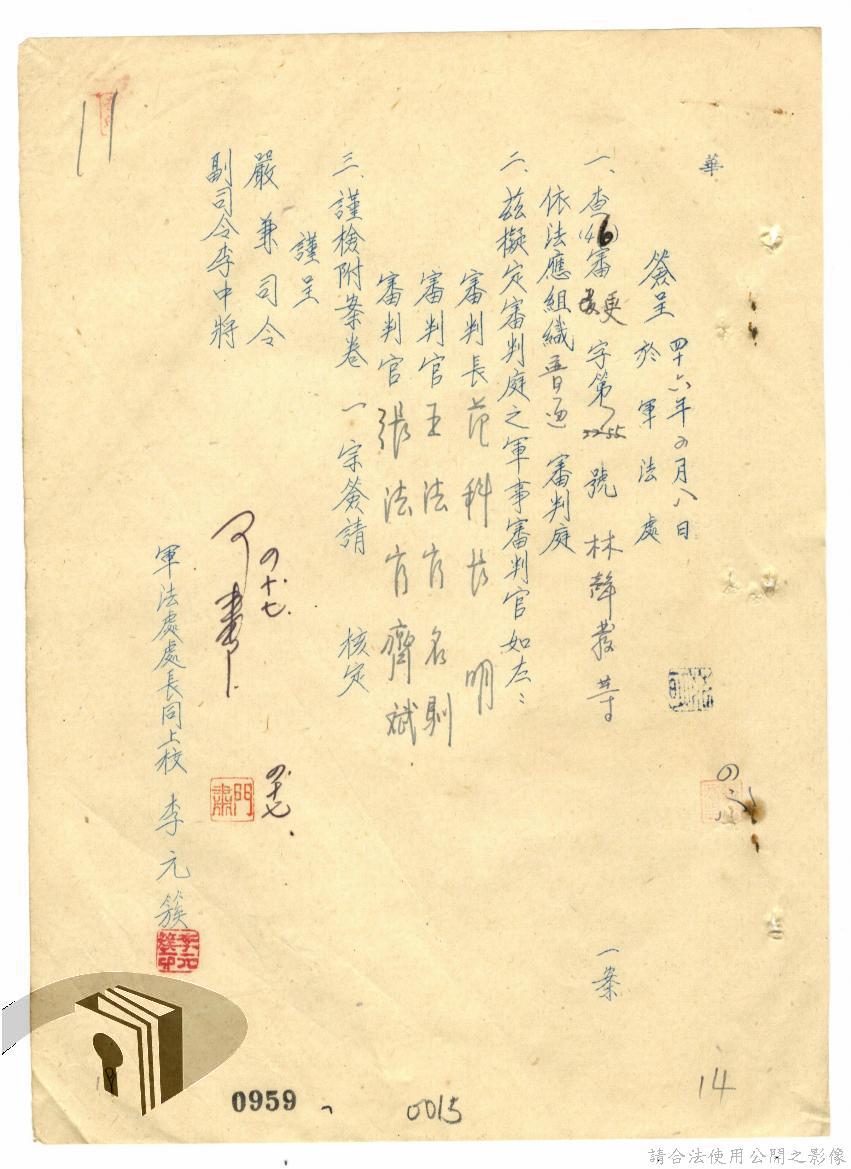 華
簽呈 四十六年四月八日
於軍法處
一、查(46)審更字第號林聲發等一案
依法應組織普通審判庭
二、茲擬定審判庭之軍事審判官如左：
審判長范科長明
審判官王法官名馴
審判官張法官齊斌
三、謹檢附案卷一宗簽請 核定
謹呈
嚴兼司令
副司令李中將
四.十七.
四.十七.
軍法處處長同上校李元簇
門肅
李元簇印
11
14
19
0959
0015
請合法使用公開之影像